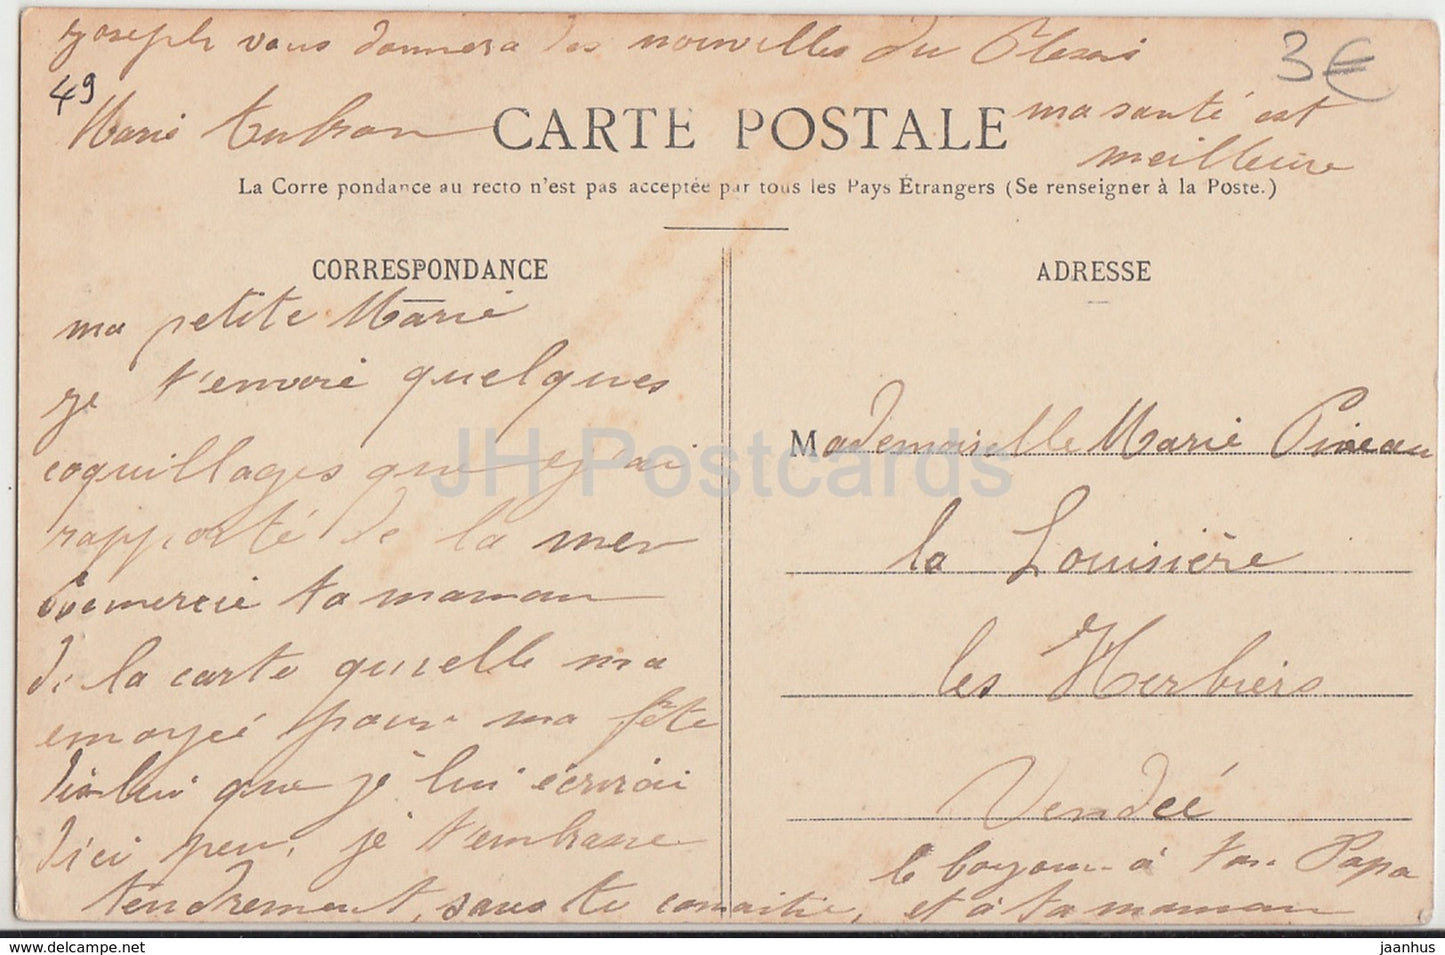 Joseph vous donnera des nouvelles du Plessis
3€
49
Marie
CARTE POSTALE
ma santé est
meilleure
La Corre pondance au recto n'est pas acceptée par tous les Pays Étrangers (Se renseigner à la Poste.)
CORRESPONDANCE
ADRESSE
ma petite Marie
je t'envoie quelques
coquillages que j'ai
rapporté de la mer
Remercie ta maman
de la carte qu'elle ma
envoyée pour ma fête
dis lui que je lui écrirai
d'ici peu, je t'embrasse
tendrement, sans te connaitre, et à ta maman
Mademoiselle Marie Pineau
la Louisière
les Herbiers
Vendée
le bonjour à ton Papa
JH Postcards
jaanhus